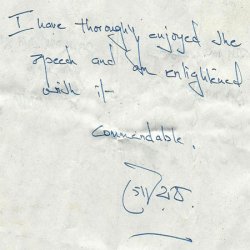 I have thoroughly enjoyed the
speech and am enlightened
with it-
Commendable.